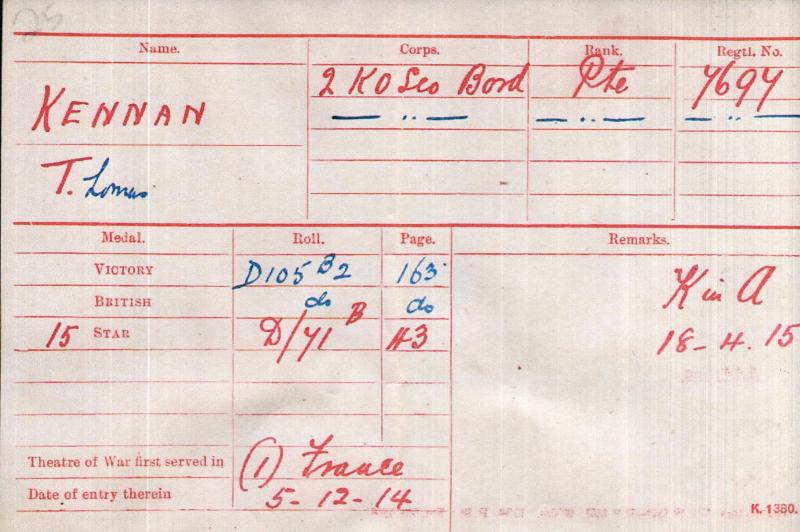 Name. Corps. Rank. Regtl. No.
KENNAN 2 K O Sco Bord Pte 7697
— .. — — .. — — .. —
T. Lomas
Medal. Roll. Page. Remarks.
VICTORY D105 B2 163
BRITISH do do
15 STAR D/71 B 43
K in A
18-4.15
Theatre of War first served in (1) France
Date of entry therein 5-12-14
K. 1380.